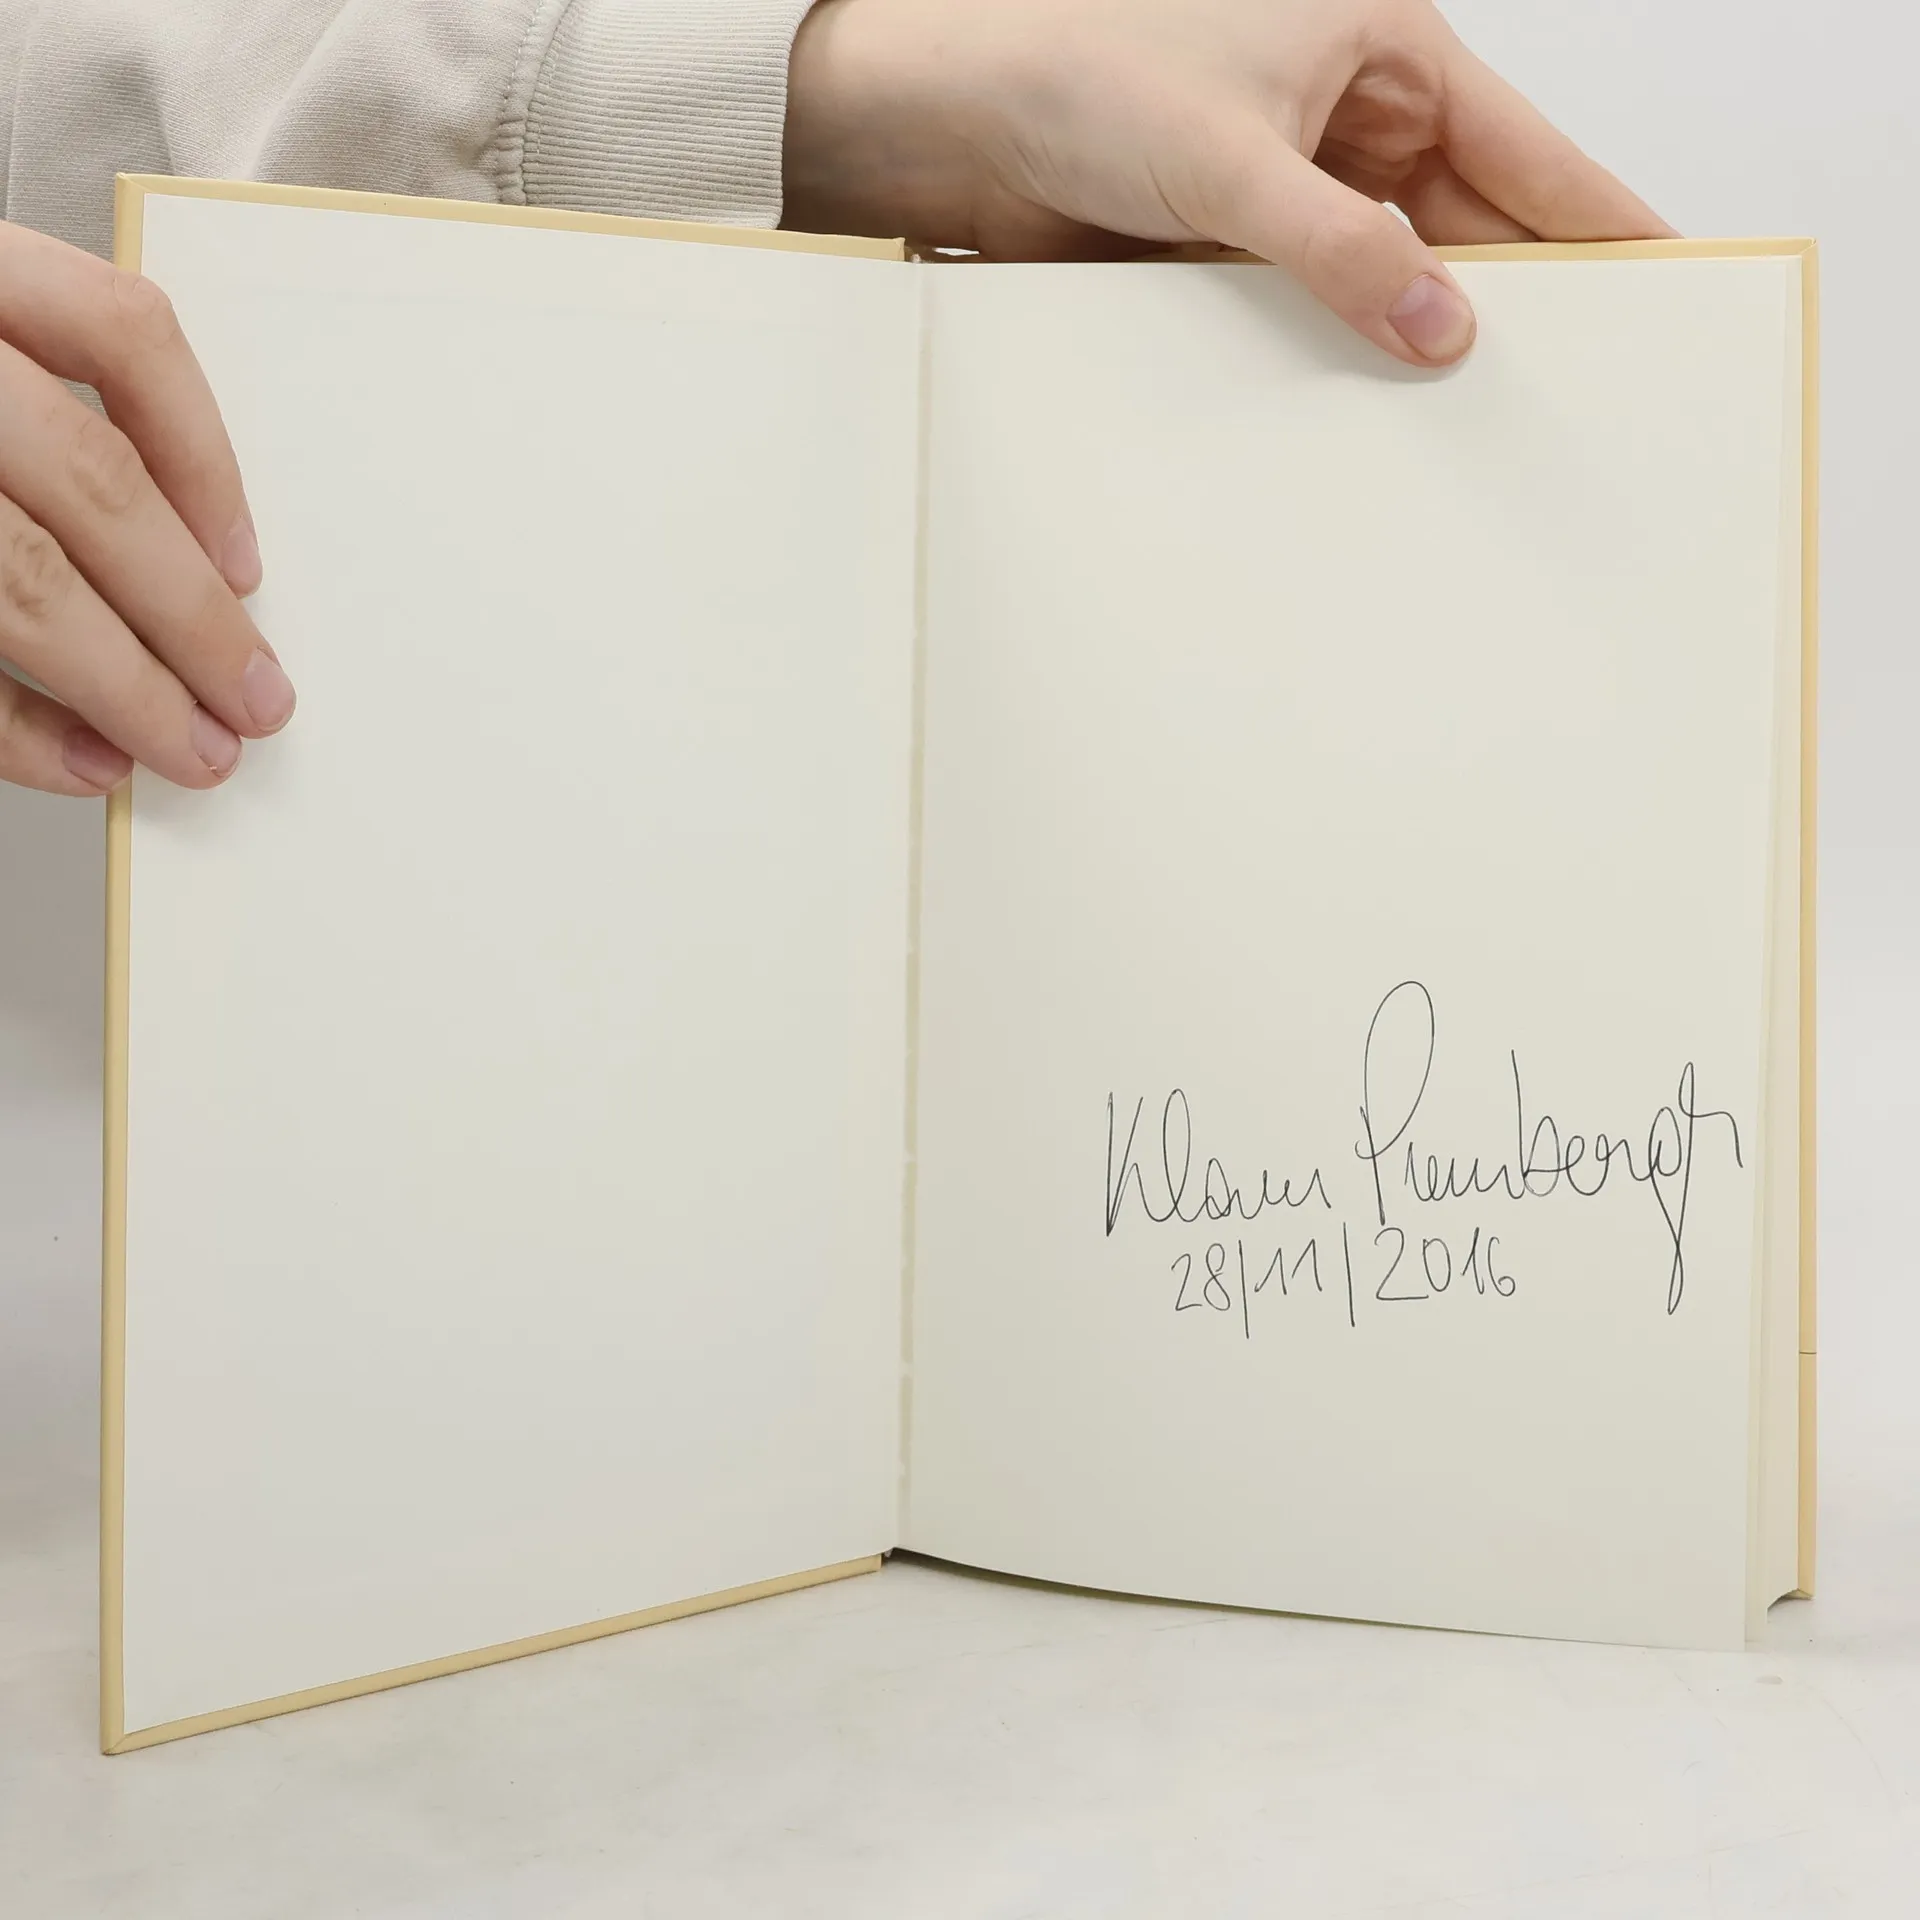 Klaus
28/11/2016